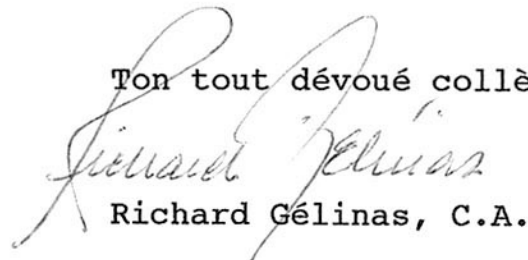 Ton tout dévoué collè
Richard Gélinas
Richard Gélinas, C.A.